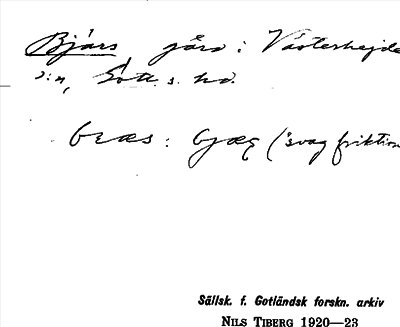 Bjärs, gård i Västerhejde
s:n, Gotl. s. hd.
(svag friktion
Sällsk. f. Gotländsk forskn. arkiv
NILS TIBERG 1920—23